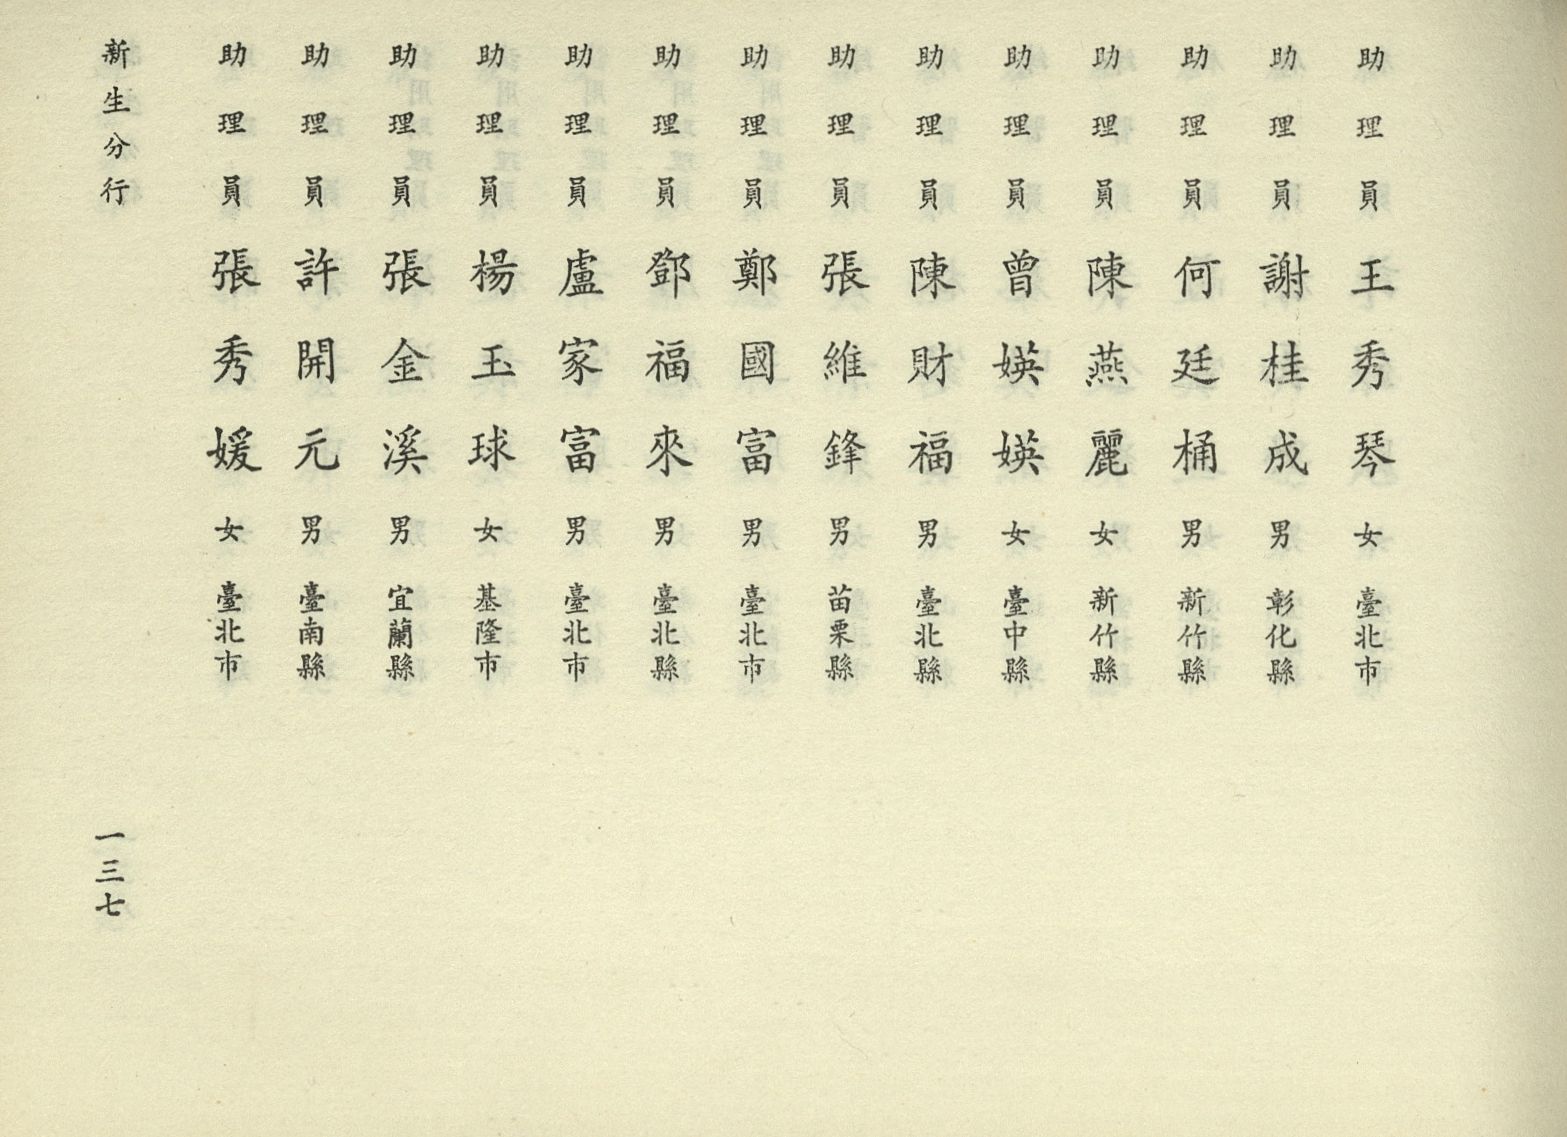 助理員 王秀琴 女 臺北市
助理員 謝桂成 男 彰化縣
助理員 何廷桶 男 新竹縣
助理員 陳燕麗 女 新竹縣
助理員 曾媖媖 女 臺中縣
助理員 陳財福 男 臺北縣
助理員 張維鋒 男 苗栗縣
助理員 鄭國富 男 臺北市
助理員 鄧福來 男 臺北縣
助理員 盧家富 男 臺北市
助理員 楊玉球 女 基隆市
助理員 張金溪 男 宜蘭縣
助理員 許開元 男 臺南縣
助理員 張秀媛 女 臺北市
新生分行 一三七